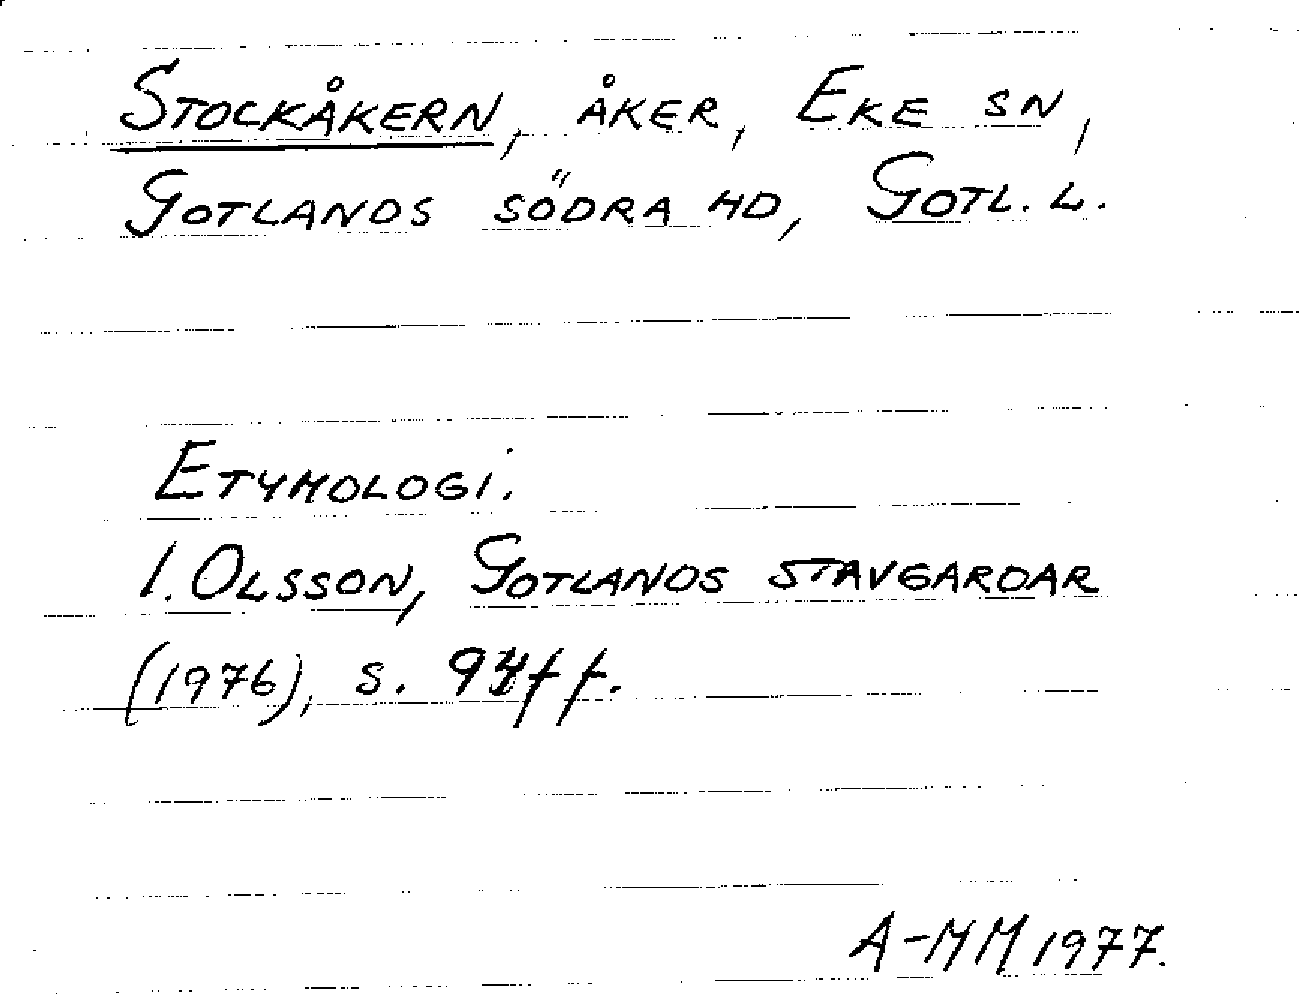 STOCKÅKERN, ÅKER, EKE SN,
GOTLANDS SÖDRA HD, GOTL. L.
ETYMOLOGI:
I. OLSSON, GOTLANDS STAVGARDAR
(1976), s. 94ff.
A-MM 1977.